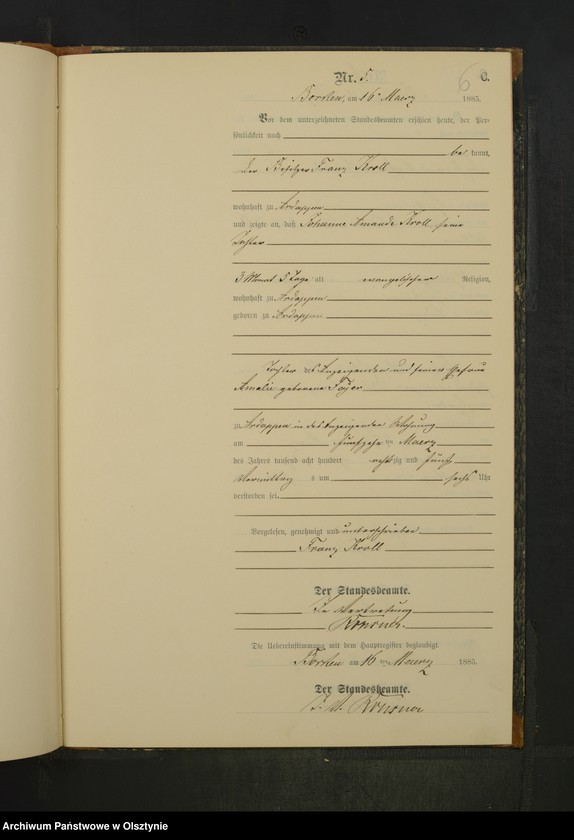 Nr. 5.
6 C.
Borken, am 16ten Maerz 1885.
Vor dem unterzeichneten Standesbeamten erschien heute, der Per-
sönlichkeit nach
be kannt,
der Besitzer Franz Kroll
wohnhaft zu Ardappen
und zeigte an, daß Johanne Amande Kroll, seine
Tochter
3 Monat 5 Tage alt evangelischer Religion,
wohnhaft zu Ardappen
geboren zu Ardappen
Tochter des Anzeigenden und seiner Ehefrau
Amalie geborene
zu Ardappen in des Anzeigenden Wohnung
am fünfzehnten Maerz
des Jahres tausend acht hundert achtzig und fünf
Vormittags um sechs Uhr
verstorben sei.
Vorgelesen, genehmigt und unterschrieben
Franz Kroll
Der Standesbeamte.
In Vertretung
Die Uebereinstimmung mit dem Hauptregister beglaubigt.
Borken am 16ten Maerz 1885.
Der Standesbeamte.
J. V.
Archiwum Państwowe w Olsztynie